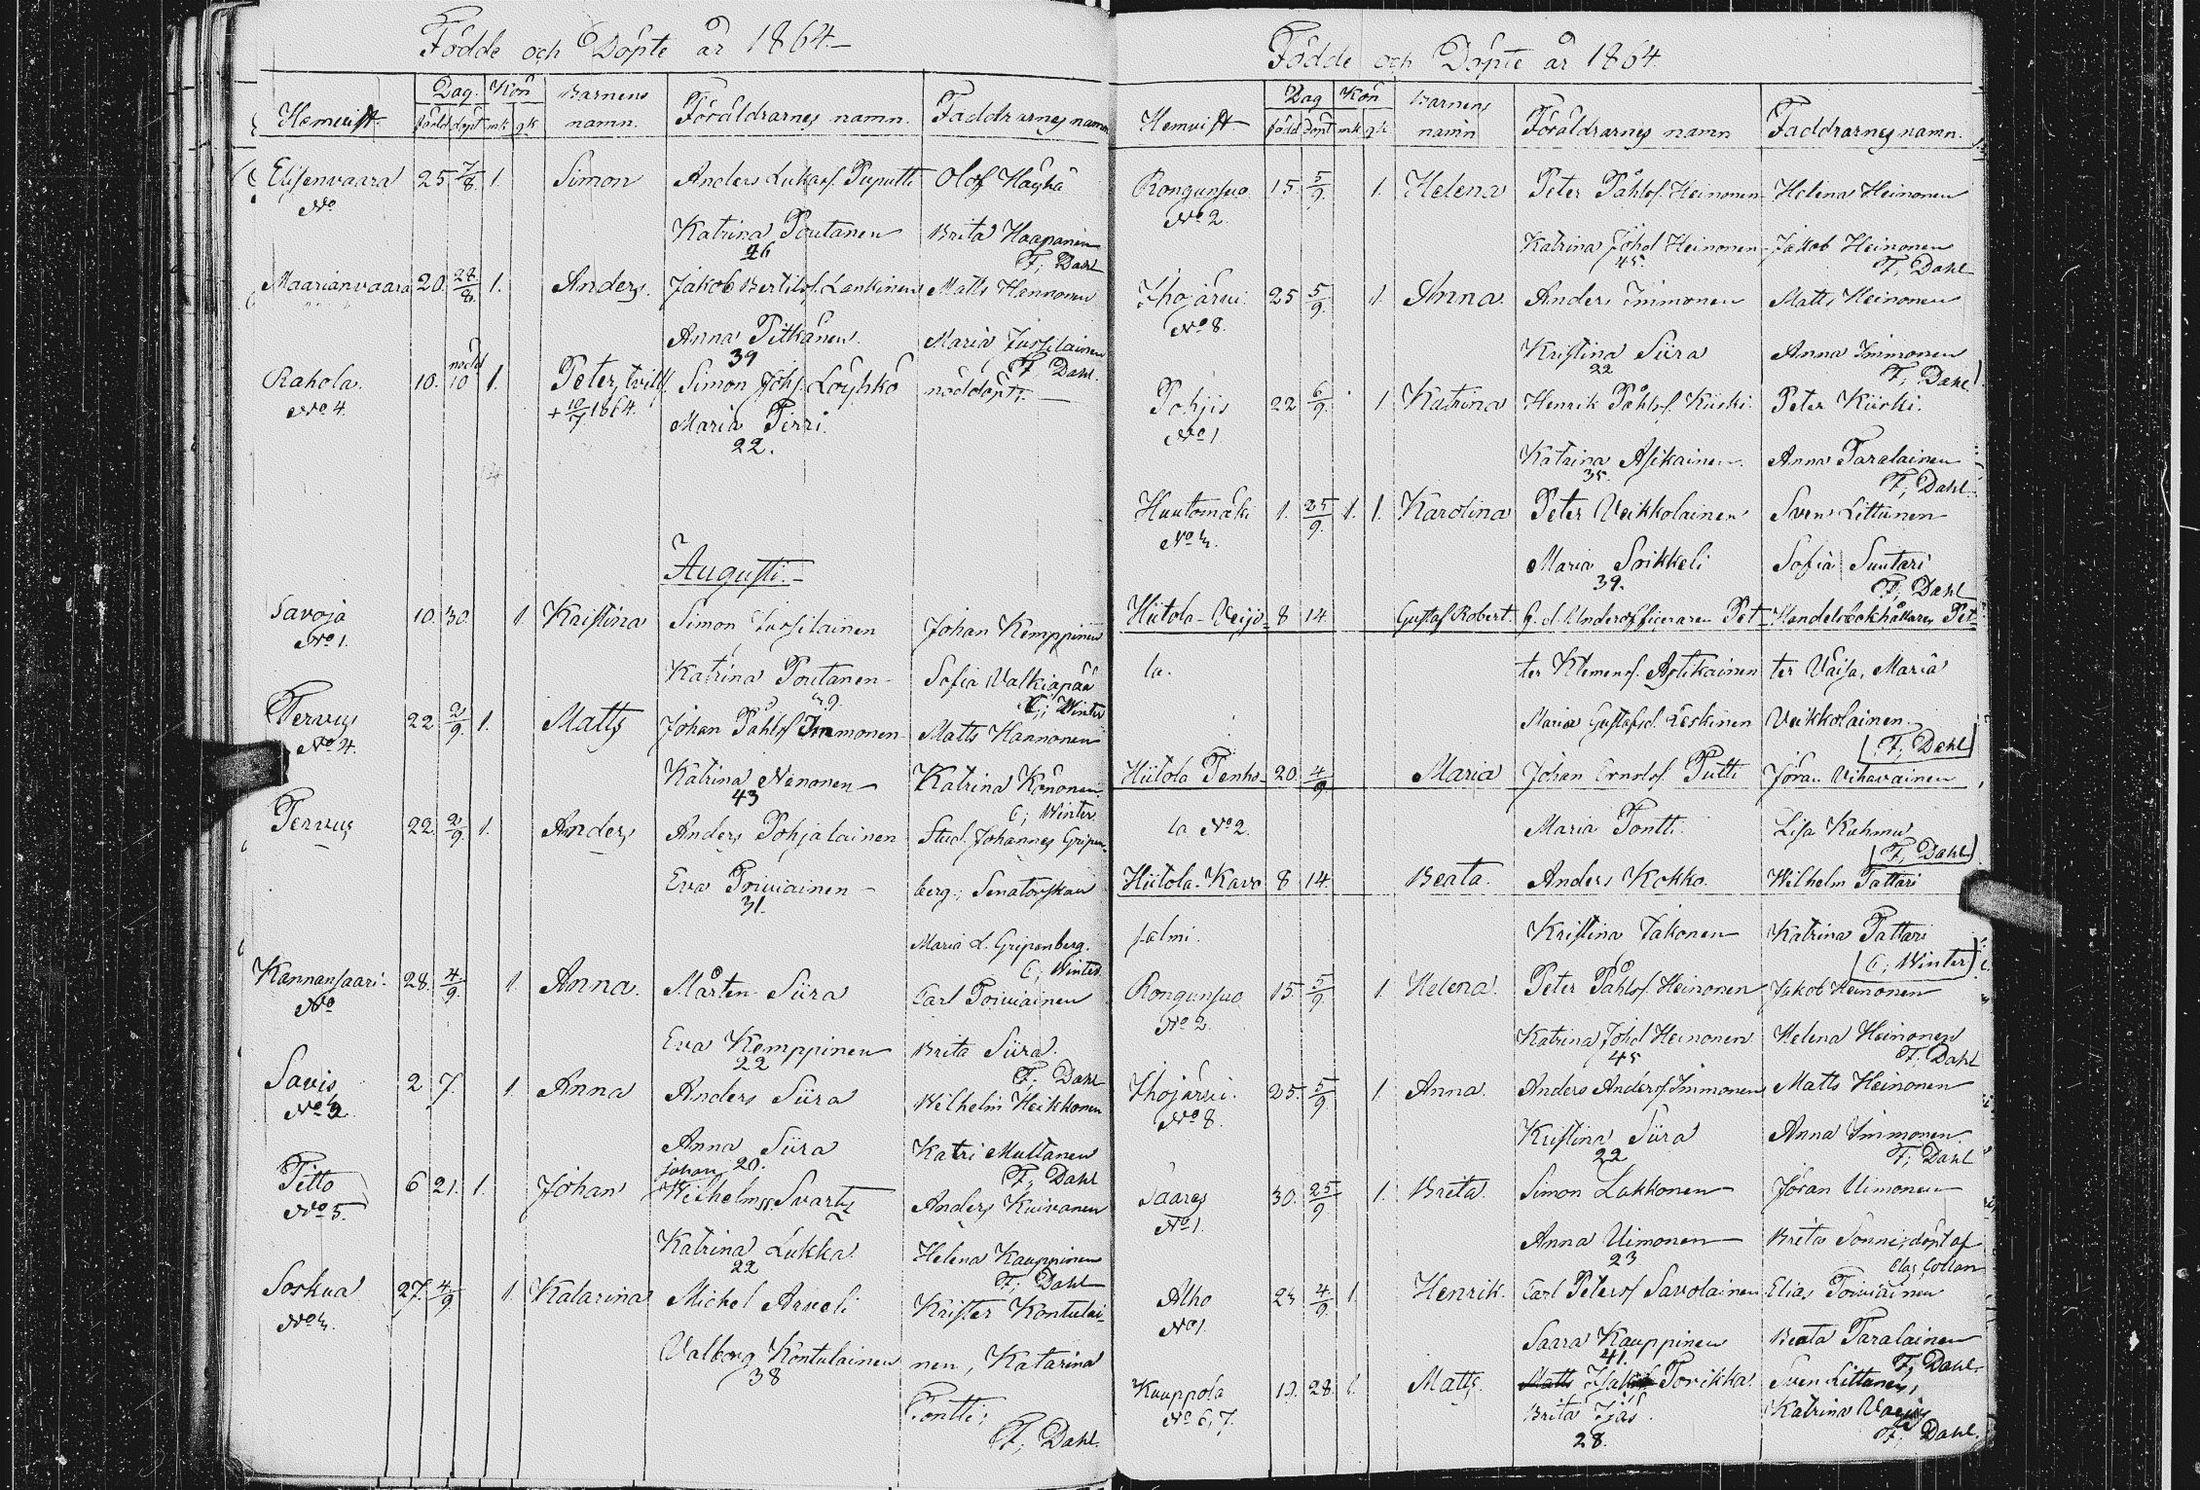 Födde och Döpte år 1864.
Hemvist. Dag. Kön Barnens namn. Föräldrarnes namn. Faddrarnes namn
född döpt mk qk
Elisenvaara 25 7/8 1. Simon Anders Lukasf. Puputti Olof Häyhä
No
Katrina Poutanen Brita Haapanen
26 F; Dahl
Maarianvaara 20. 28/8. 1. Anders. Jakob Bertilsf. Lankinen Matts Hannonen
Anna Pitkänen. Maria Jussilainen
39 F; Dahl.
Rahola. 10. nöd d 10 1. Peter, tvill. Simon Johsf. Löyhkö nöddöpt.
No 4. + 10/7 1864. Maria Pirri.
22.
Augusti.
Savoja 10. 30. 1 Kristina Simon Jussilainen Johan Kemppinen
No 1.
Katrina Poutanen Sofia Walkiapää
C; Winter
Tervus 22 2/9. 1. Matts Johan Påhlsf Immonen Matts Hannonen
No 4.
Katrina Nenonen Katrina Könönen.
43 C; Winter.
Tervus 22. 2/9. 1. Anders Anders Pohjalainen Stud. Johannes Gripen-
Eva Toiviainen berg; Senatorskan
31.
Maria L. Gripenberg.
C; Winter.
Kannansaari. 28. 4/9. 1. Anna. Mårten Siira Carl Toiviainen
No
Eva Kemppinen Brita Siira.
22 F; Dahl
Savis 2 7. 1 Anna Anders Siira Wilhelm Heikkonen
No 2.
Anna Siira Katri Multanen
20. F; Dahl
Titto 6 21. 1. Johan Johan Wilhelmsf. Svarts Anders Kuivanen
No 5.
Katrina Lukka. Helena Kauppinen
22 F; Dahl
Soskua 27. 4/9 1 Katarina Michel Arveli Krister Kontulai-
No 3.
Valborg Kontulainen nen, Katarina
38
Pontti;
F; Dahl.
Födde och Döpte år 1864.
Hemvist. Dag Kön Barnens namn Föräldrarnes namn Faddrarnes namn.
född döpt mk qk
Rongunsuo 15. 5/9. 1. Helena Peter Påhlsf. Heinonen Helena Heinonen
No 2.
Katrina Johd Heinonen Jakob Heinonen
45. F; Dahl
Ihojärvi. 25 5/9. 1 Anna. Anders Immonen Matts Heinonen
No 8.
Kristina Siira Anna Immonen
22 F; Dahl
Pohjis 22 6/9. 1 Katrina Henrik Påhlsf. Kiiski. Peter Kiiski.
No 1
Katrina Asikainen. Anna Taralainen
35. F; Dahl.
Huutomäki 1. 25/9. 1. 1. Karolina Peter Veikkolainen Sven Littunen
No 3.
Maria Soikkeli Sofia Suutari
39. F; Dahl
Hiitola-Veijo- 8 14 Gustaf Robert. F. d. Underofficeraren Pet- Handelsbokhållaren Pet-
la. ter Klemensf. Agtikainen ter Väisä, Maria
Maria Gustafsd. Leskinen Veikkolainen.
F; Dahl
Hiitola Tenho- 20. 4/9 Maria Johan Ernolsf. Putti Jöran Vihavainen
la No 2. Maria Pontti. Lisa Kuhmu
F; Dahl
Hiitola-Kavo 8 14. Beata. Anders Kokko. Wilhelm Tattari
salmi. Kristina Takonen Katrina Tattari
C; Winter
Rongunsuo 15. 5/9. 1. Helena. Peter Påhlsf. Heinonen Jakob Heinonen
No 2.
Katrina Johd Heinonen Helena Heinonen
45 F. Dahl
Ihojärvi. 25. 5/9 1. Anna. Anders Andersf Immonen Matts Heinonen
No 8.
Kristina Siira Anna Immonen.
22 F; Dahl
Saares 30. 25/9 1. Brita. Simon Lakkonen Jöran Uimonen
No 1.
Anna Uimonen Brita Sonni, döpt af
23. Clas Collan
Alho 23 4/9. 1 Henrik. Carl Petersf Savolainen Elias Toiviainen
No 1.
Saara Kauppinen Beata Taralainen
41. F; Dahl.
Kuuppola 19. 28. 1. Matts. Matts Torikka. Sven Littunen,
No 6, 7. Brita Ijäs. Katrina
28. F; Dahl.